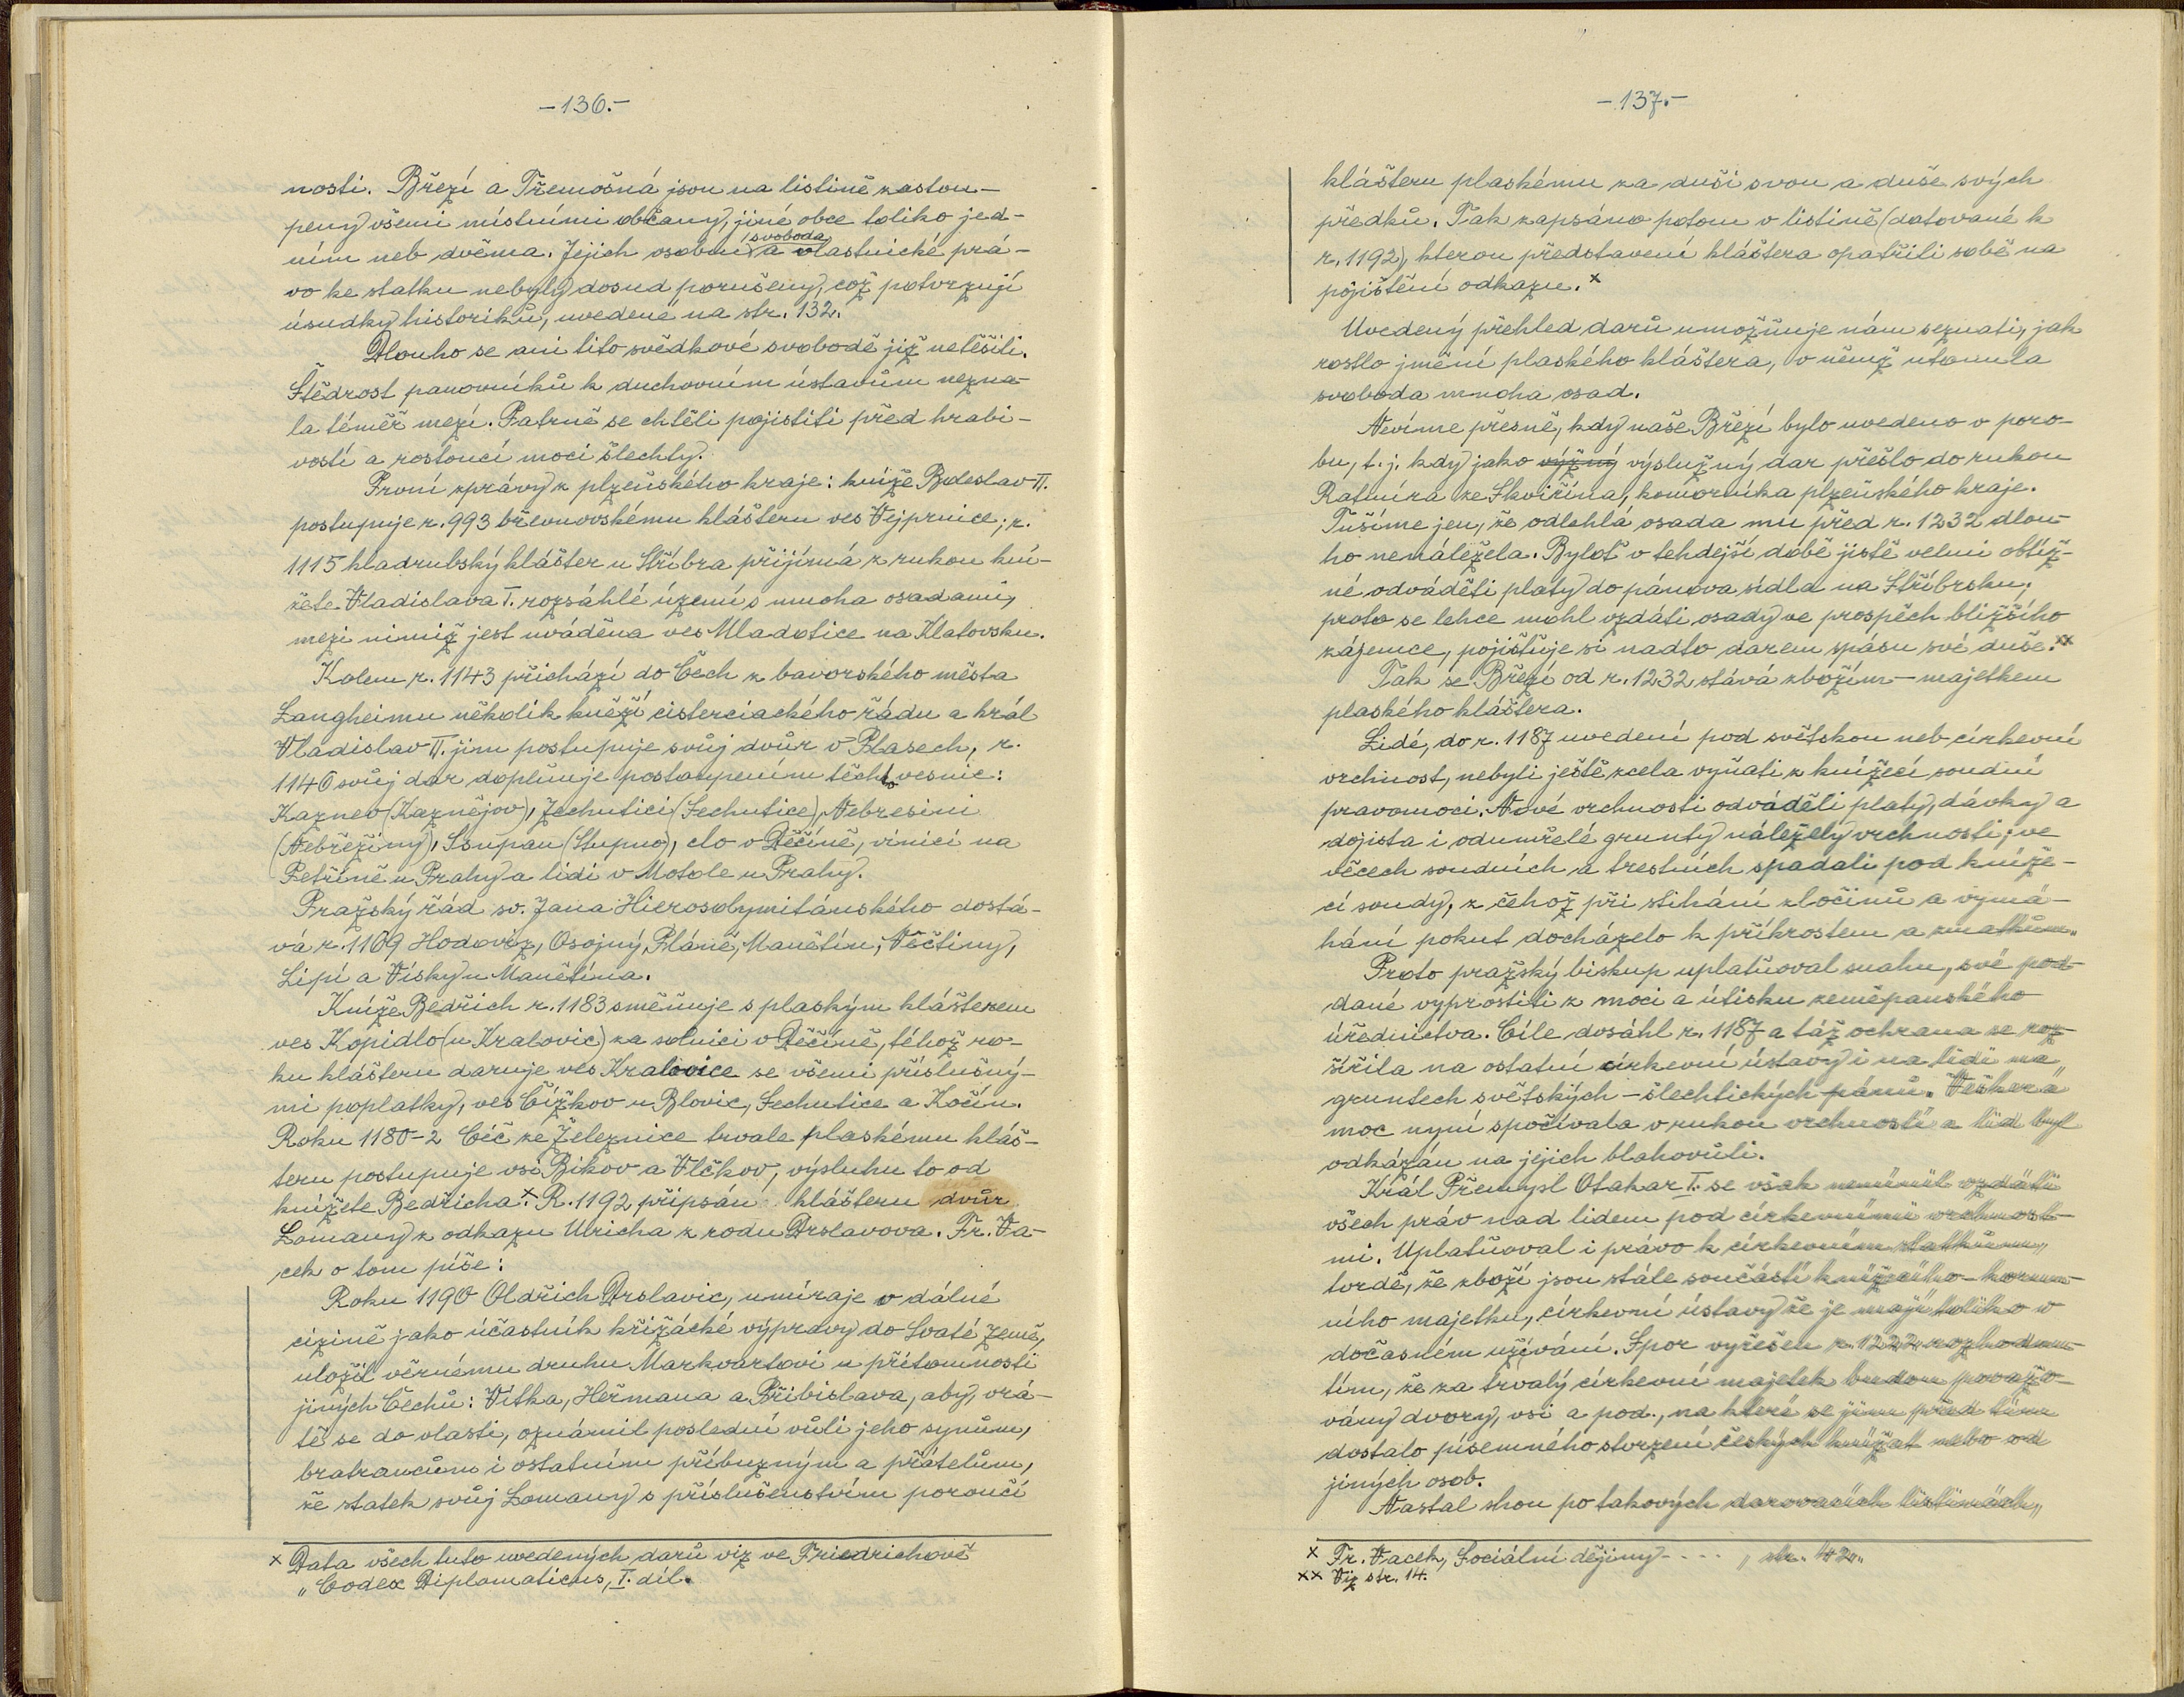 -136.-
nosti. Březí a Třemošná jsou na listině zastou-
peny všemi místními občany, jiné obce toliko jed-
svoboda
ním neb dvěma. Jejich osobní a vlastnické prá-
vo ke statku nebyly dosud porušeny, což potvrzují
úsudky historiků, uvedené na str. 132.
Dlouho se ani tito svědkové svobodě již netěšili.
Štědrost panovníků k duchovním ústavům nezna-
la téměř mezí. Patrně se chtěli pojistiti před hrabi-
vostí a rostoucí mocí šlechty.
První zprávy z plzeňského kraje: kníže Boleslav II.
postupuje r. 993 břevnovskému klášteru ves Vejprnice; r.
1115 kladrubský klášter u Stříbra přijímá z rukou kní-
žete Vladislava I. rozsáhlé území s mnoha osadami,
mezi nimiž jest uváděna ves Mladotice na Klatovsku.
Kolem r. 1143 přichází do Čech z bavorského města
Langheimu několik kněží cisterciackého řádu a král
Vladislav II. jim postupuje svůj dvůr v Plasech, r.
1146 svůj dar doplňuje postoupením těchto vesnic:
Kaznev (Kaznějov), Zechutici (Sechutice), Nebresini
(Nebřeziny), Ssupan (Stupno), clo v Děčíně, vinici na
Petříně u Prahy a lidi v Motole u Prahy.
Pražský řád sv. Jana Hierosolymitánského dostá-
vá r. 1169 Hodoviz, Osojný, Pláně, Manětín, Věčtiny,
Lipí a Vísky u Manětína.
Kníže Bedřich r. 1183 směňuje s plaským klášterem
ves Kopidlo (u Kralovic) za solnici v Děčíně, téhož ro-
ku klášteru daruje ves Kralovice se všemi příslušný-
mi poplatky, ves Čížkov u Blovic, Sechutice a Kočín.
Roku 1180-2 Číč ze Železnice trvale plaskému kláš-
teru postupuje vsi Bikov a Vlčkov, výsluhu to od
knížete Bedřicha.x R. 1192 připsán klášteru dvůr
Lomany z odkazu Ulricha z rodu Drslavova. Fr. Va-
cek o tom píše:
Roku 1190 Oldřich Drslavic, umíraje v dálné
cizině jako účastník křižácké výpravy do Svaté země,
uložil věrnému druhu Markvartovi u přítomnosti
jiných Čechů: Vítka, Heřmana a Přibislava, aby, vrá-
tě se do vlasti, oznámil poslední vůli jeho synům,
bratrancům i ostatním příbuzným a přátelům,
že statek svůj Lomany s příslušenstvím poroučí
x Data všech tuto uvedených darů viz ve Friedrichově
„Codex Diplomaticus, I. díl.
-137.-
klášteru plaskému za duši svou a duše svých
předků. Tak zapsáno potom v listině (datované k
r. 1192), kterou představení kláštera opatřili sobě na
pojištění odkazu.x
Uvedený přehled darů umožňuje nám seznati, jak
rostlo jmění plaského kláštera, v němž utonula
svoboda mnoha osad.
Nevíme přesně, kdy naše Březí bylo uvedeno v poro-
bu, t. j. kdy jako výžný výslužný dar přešlo do rukou
Ratmíra ze Skviřína, komorníka plzeňského kraje.
Tušíme jen, že odlehlá osada mu před r. 1232 dlou-
ho nenáležela. Byloť v tehdejší době jistě velmi obtíž-
né odváděti platy do pánova sídla na Stříbrsku,
proto se lehce mohl vzdáti osady ve prospěch bližšího
zájemce, pojišťuje si nadto darem spásu své duše.xx
Tak se Březí od r. 1232 stává zbožím - majetkem
plaského kláštera.
Lidé, do r. 1187 uvedení pod světskou neb církevní
vrchnost, nebyli ještě zcela vyňati z knížecí soudní
pravomoci. Nové vrchnosti odváděli platy, dávky a
dojista i odumřelé grunty náležely vrchnosti; ve
věcech soudních a trestních spadali pod kníže-
cí soudy, z čehož při stíhání zločinů a vymá-
hání pokut docházelo k příkrostem a zmatkům.
Proto pražský biskup uplatňoval snahu, své pod-
dané vyprostiti z moci a útisku zeměpanského
úřednictva. Cíle dosáhl r. 1187 a táž ochrana se roz-
šířila na ostatní církevní ústavy i na lidi na
gruntech světských - šlechtických pánů. Veškerá
moc nyní spočívala v rukou vrchnosti a lid byl
odkázán na jejich blahovůli.
Král Přemysl Otakar I. se však nemínil vzdáti
všech práv nad lidem pod církevními vrchnost-
mi. Uplatňoval i právo k církevním statkům,
tvrdě, že zboží jsou stále součástí knížecího - korun-
ního majetku, církevní ústavy že je mají toliko v
dočasném užívání. Spor vyřešen r. 1222 rozhodnu-
tím, že za trvalý církevní majetek budou považo-
vány dvory, vsi a pod., na které se jim před tím
dostalo písemného stvrzení českých knížat nebo od
jiných osob.
Nastal shon po takových darovacích listinách,
x Fr. Vacek, Sociální dějiny - - - - , str. 42.
xx Viz str. 14.